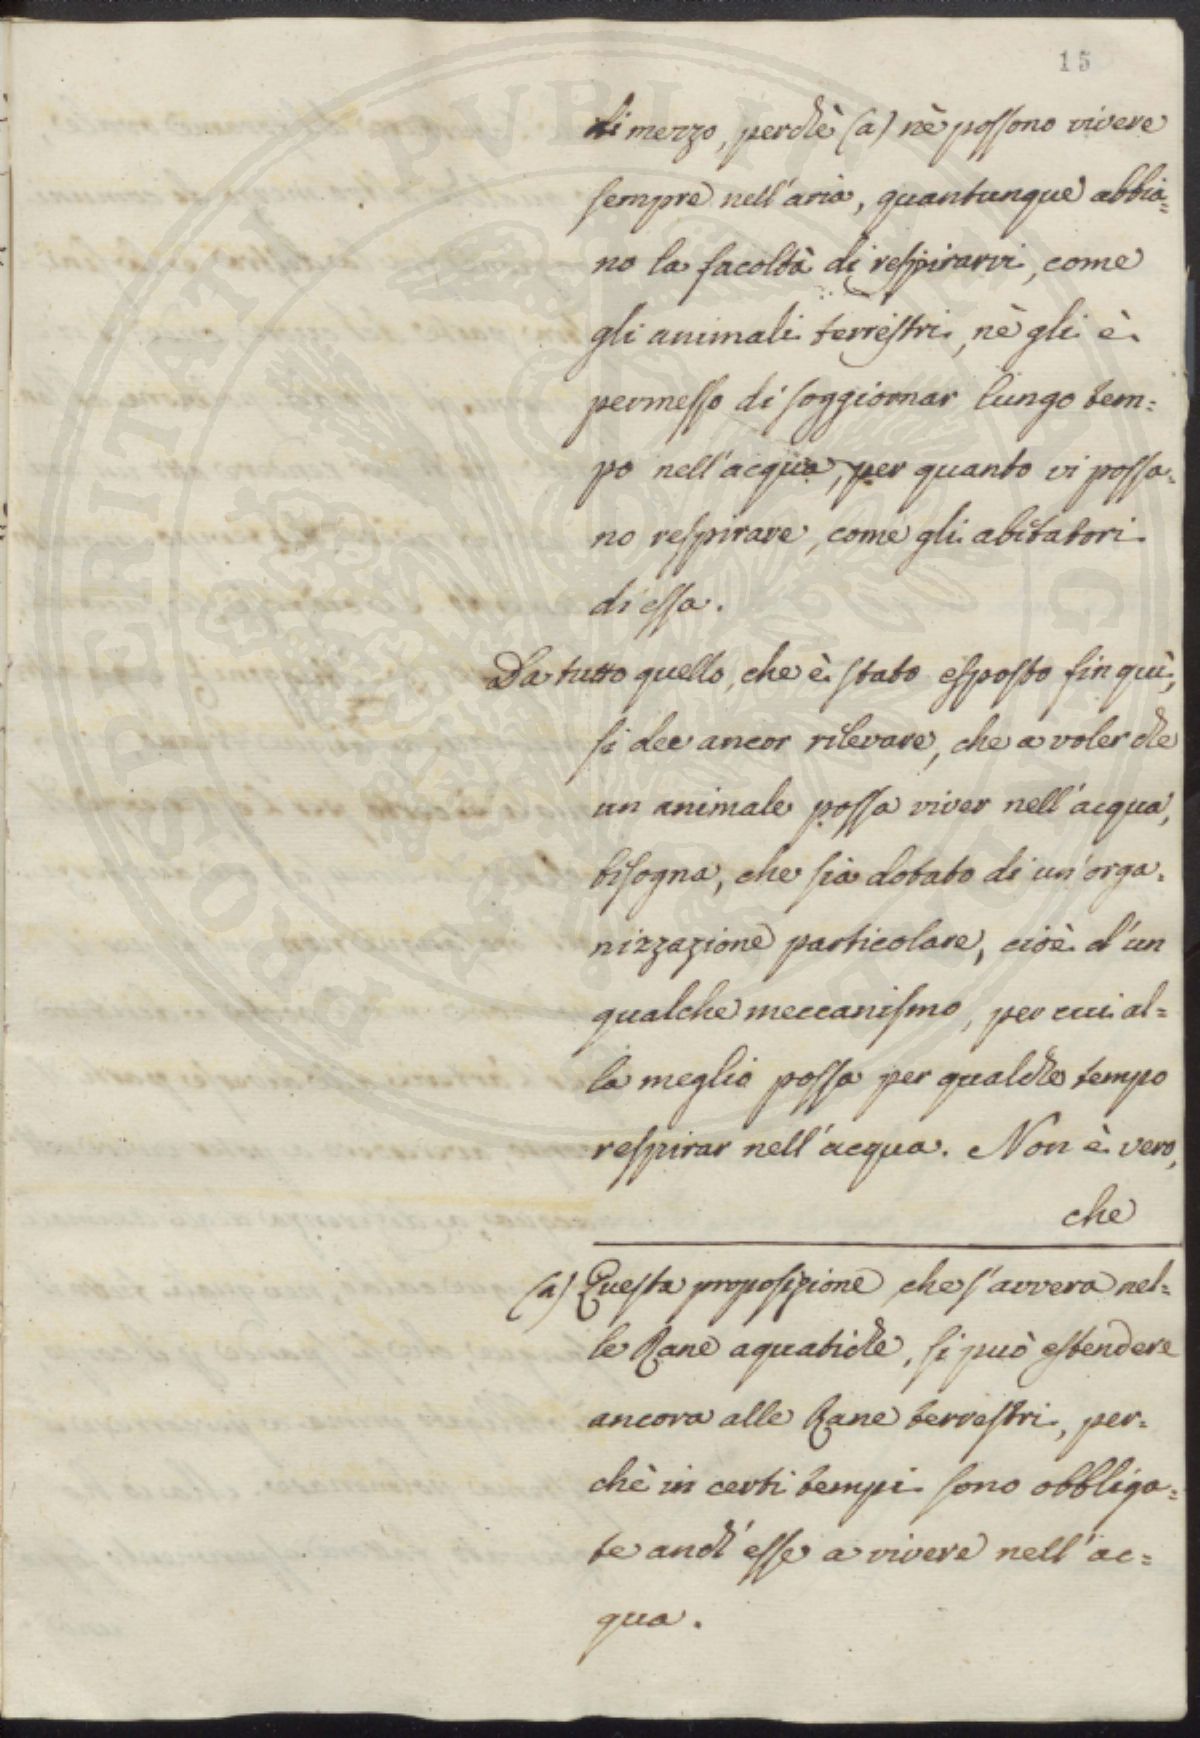 15
di mezzo, perchè (a) nè possono vivere
sempre nell'aria, quantunque abbia=
no la facoltà di respirarvi, come
gli animali terrestri, nè gli è
permesso di soggiornar lungo tem=
po nell'acqua, per quanto vi possa=
no respirare, come gli abitatori
di essa.
Da tutto quello, che è stato esposto fin quì,
si dee ancor rilevare, che a voler che
un animale possa viver nell'acqua,
bisogna, che sia dotato di un'orga=
nizzazione particolare, cioè d'un
qualche meccanismo, per cui al=
la meglio possa per qualche tempo
respirar nell'acqua. Non è vero,
che
(a) Questa proposizione che s'avvera nel=
le Rane aquatiche, si può estendere
ancora alle Rane terrestri, per=
chè in certi tempi sono obbliga=
te anch'esse a vivere nell'ac=
qua.